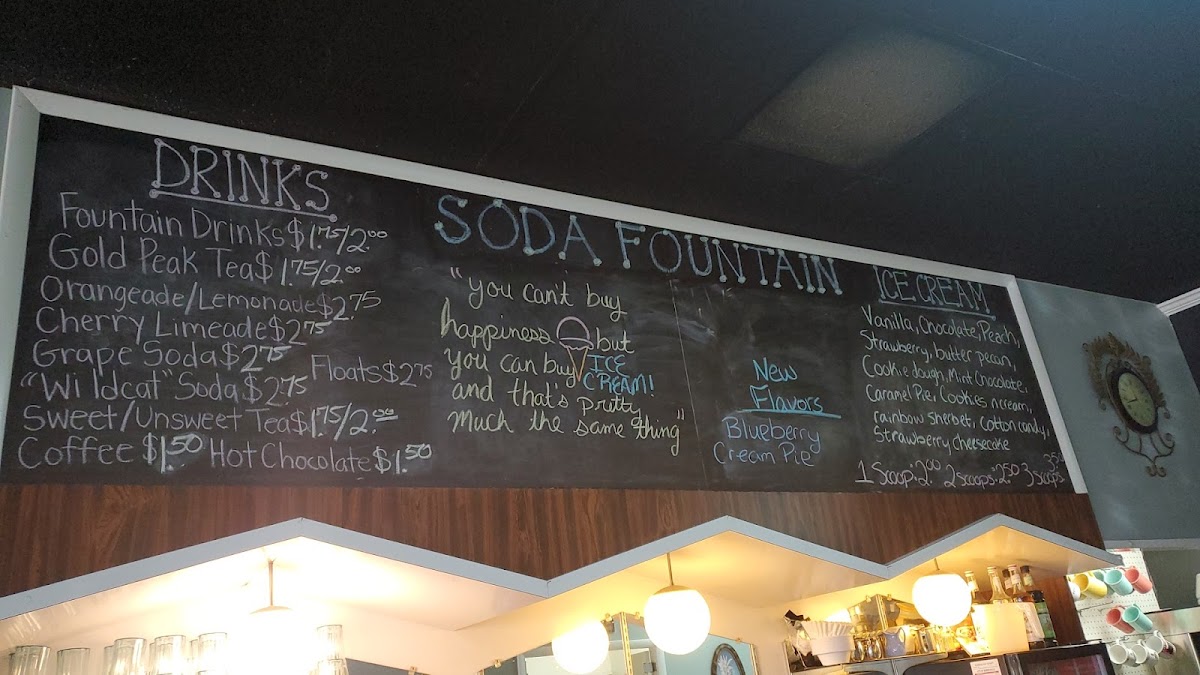 DRINKS
Fountain Drinks $1.75/2.00
Gold Peak Tea $1.75/2.00
Orangeade/Lemonade $2.75
Cherry Limeade $2.75
Grape Soda $2.75
Floats $2.75
"Wildcat" Soda $2.75
Sweet/Unsweet Tea $1.75/2.00
Coffee $1.50 Hot Chocolate $1.50
SODA FOUNTAIN
"you can't buy
happiness but
you can buy ICE
CREAM!
and that's pretty
much the same thing"
New
Flavors
Blueberry
Cream Pie
ICE CREAM
Vanilla, Chocolate, Peach,
Strawberry, butter pecan,
Cookie dough, Mint Chocolate,
Caramel Pie, Cookies n cream,
rainbow sherbet, cotton candy,
Strawberry cheesecake
1 Scoop: 2.00 2 scoops: 2.50 3 scoops 3.50